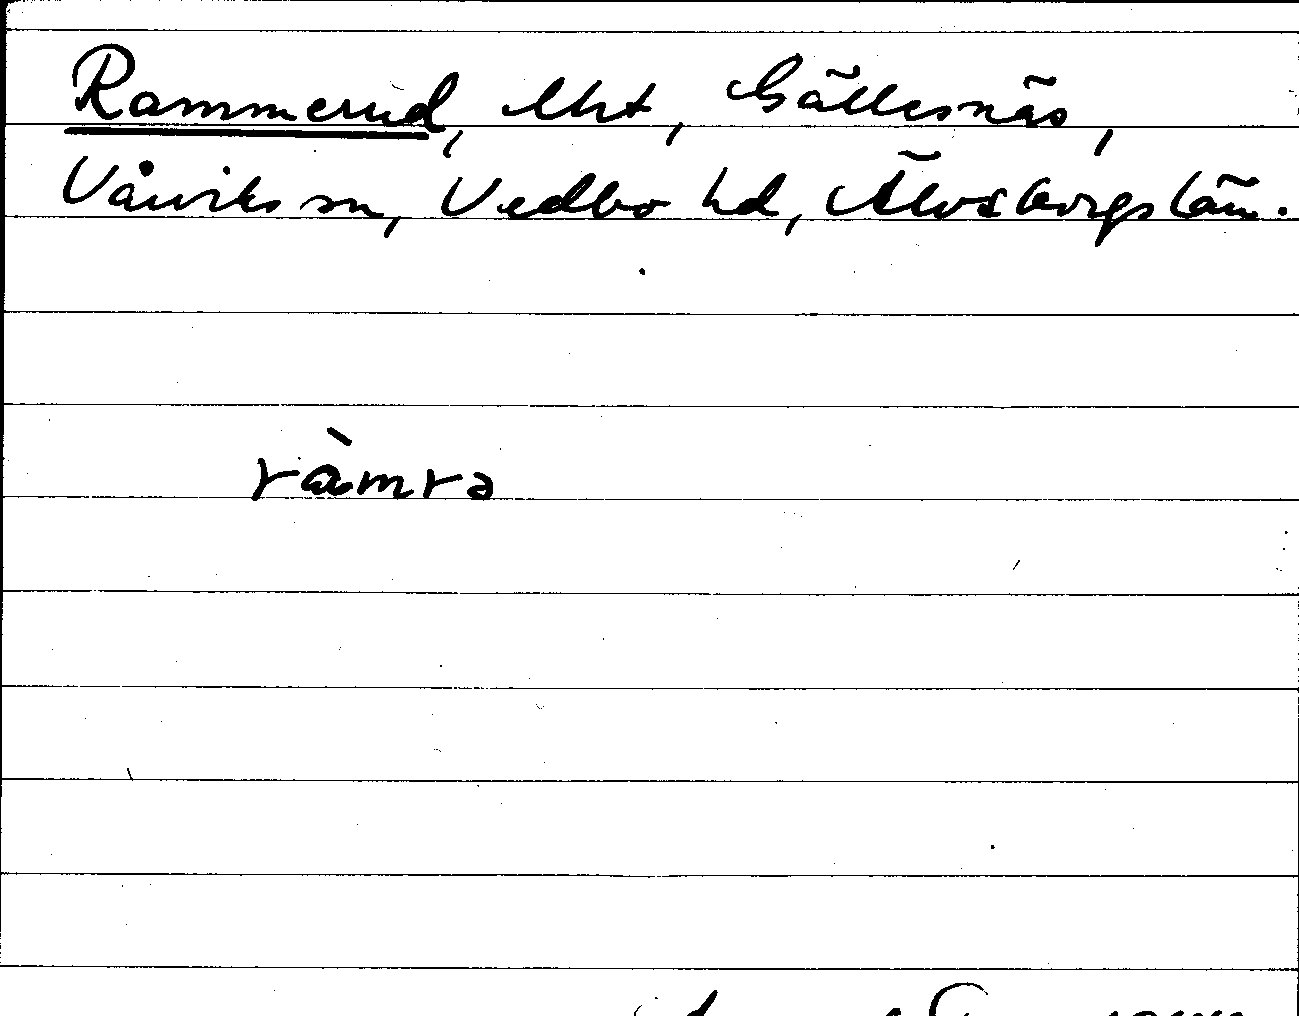 Rammerud, lht, Gällesnäs,
Vårviks sn, Vedbo hd, Älvsborgs län.
ràmra